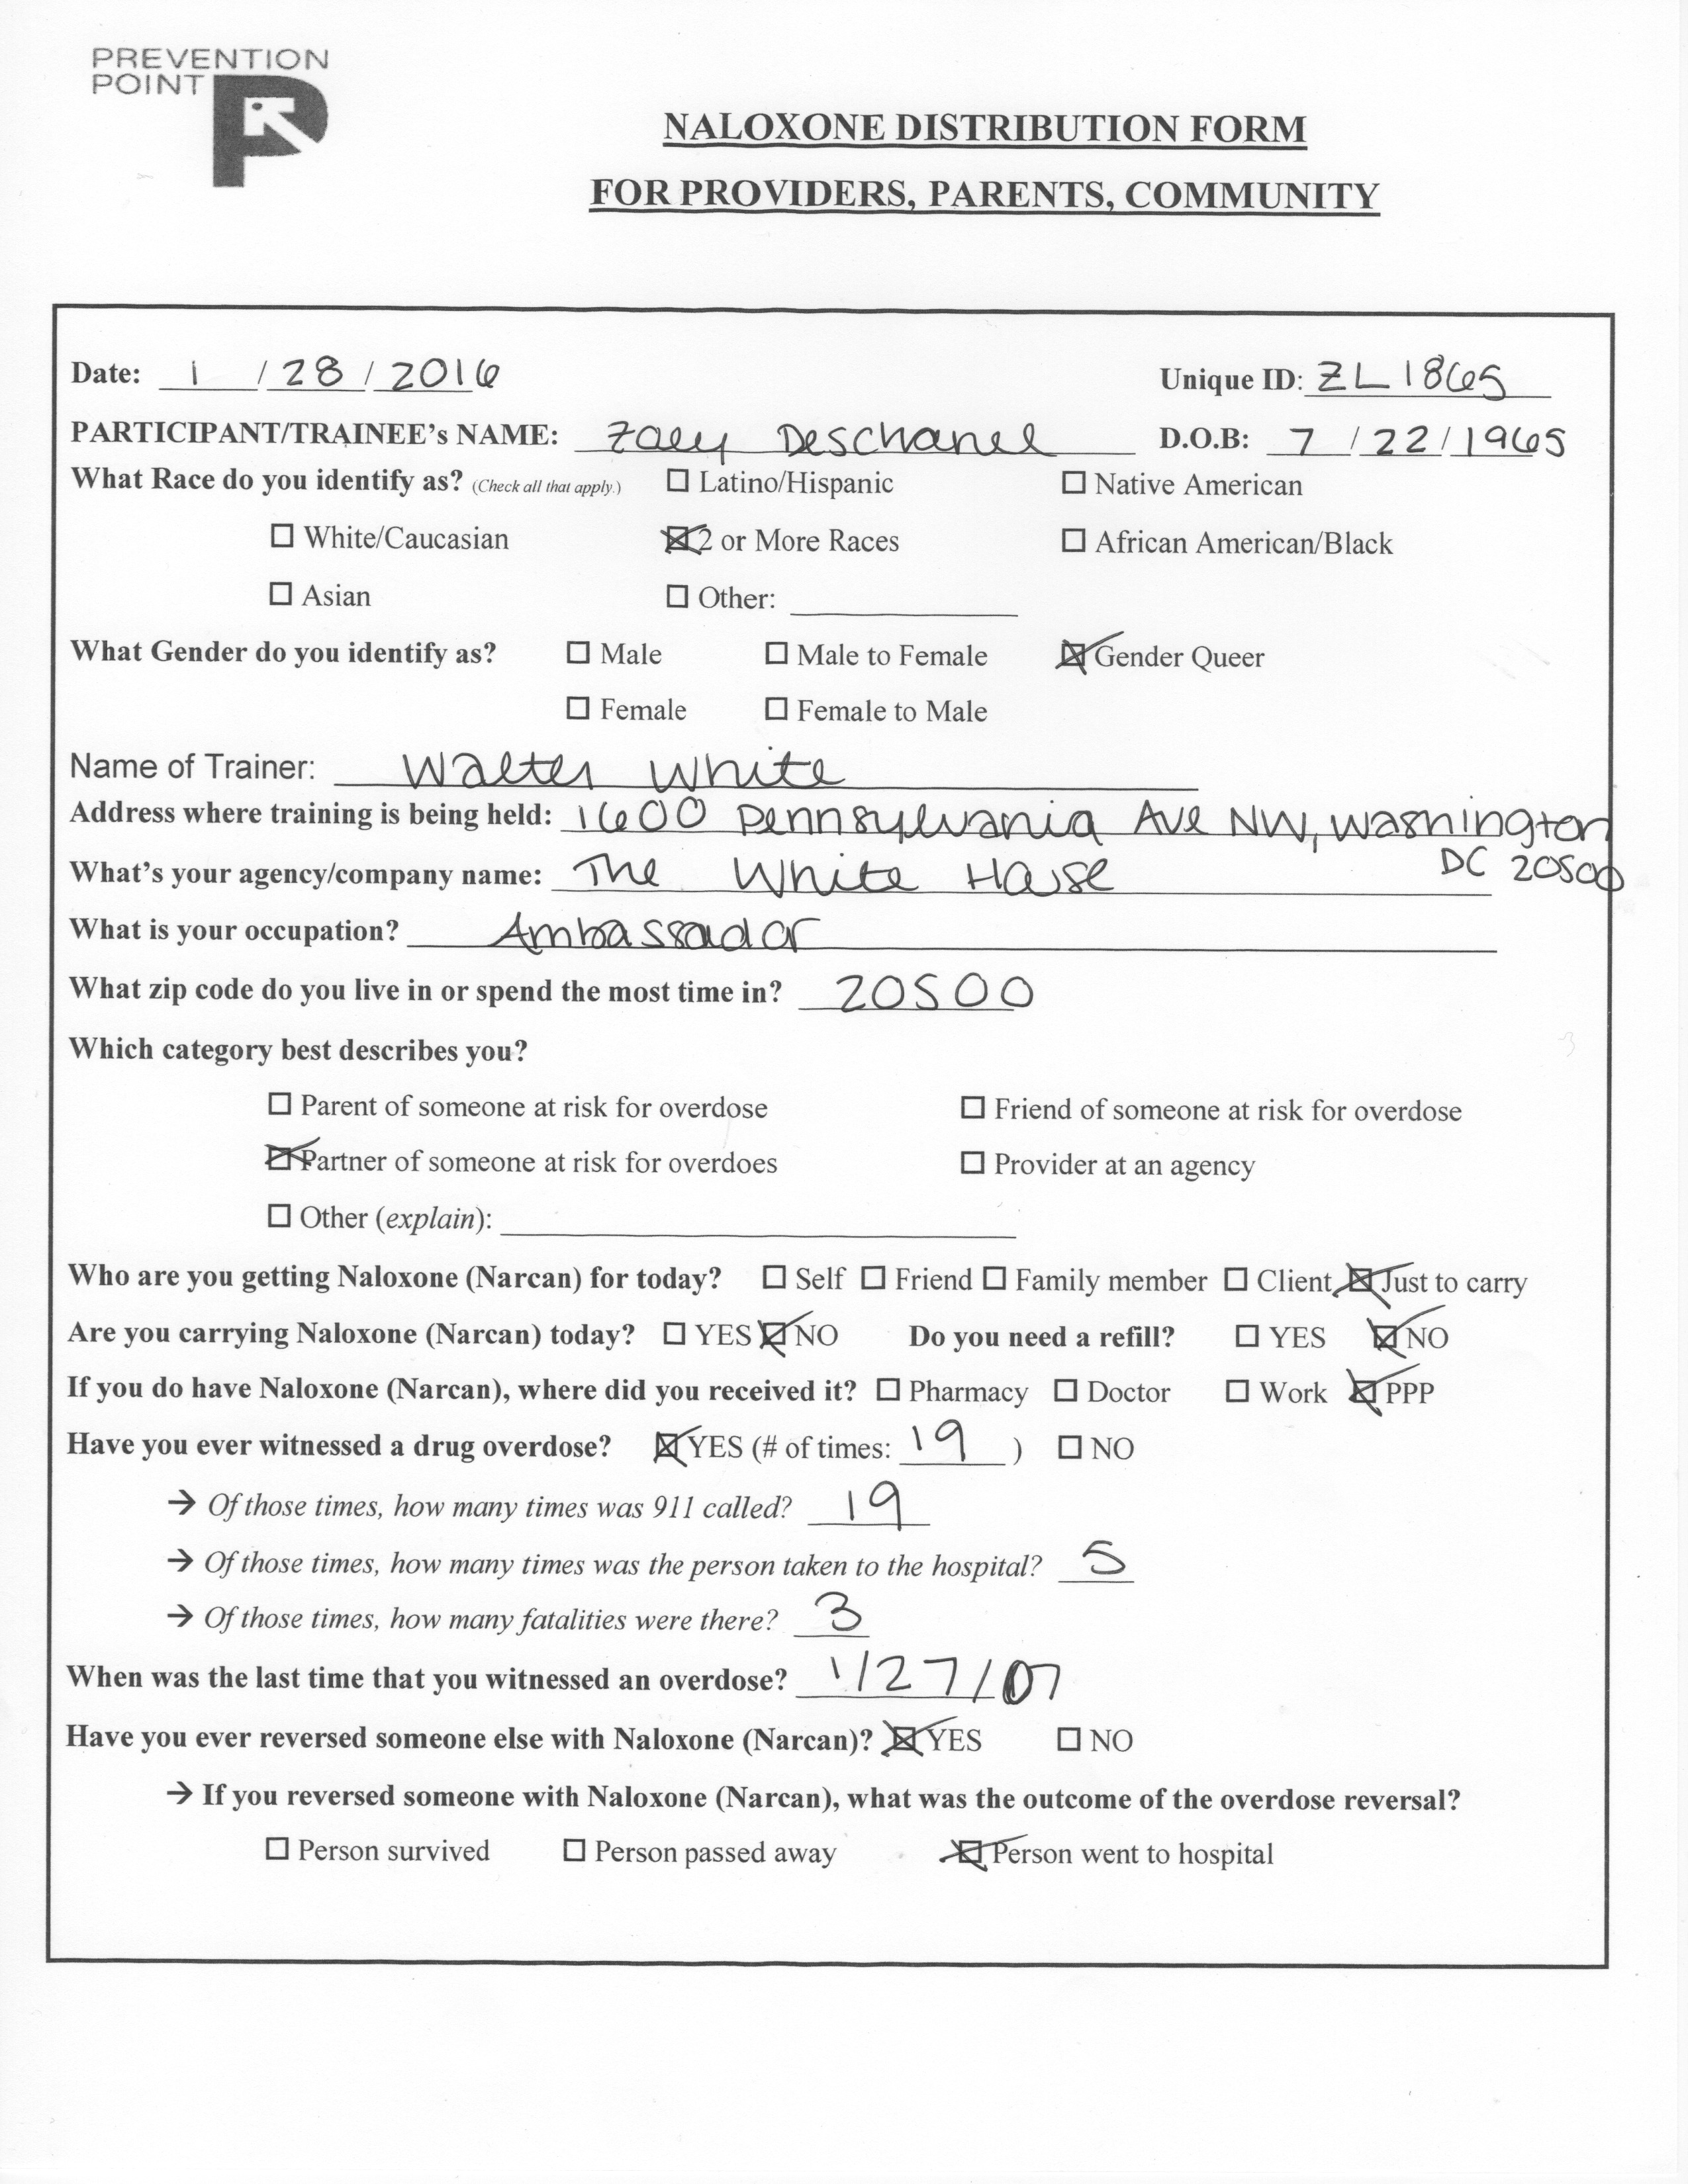 PREVENTION
POINT
NALOXONE DISTRIBUTION FORM
FOR PROVIDERS, PARENTS, COMMUNITY
Date: 1 / 28 / 2016 Unique ID: ZL1865
PARTICIPANT/TRAINEE's NAME: Zoey Deschanel D.O.B: 7 / 22 / 1965
What Race do you identify as? (Check all that apply.) ☐ Latino/Hispanic ☐ Native American
☐ White/Caucasian ☒ 2 or More Races ☐ African American/Black
☐ Asian ☐ Other:
What Gender do you identify as? ☐ Male ☐ Male to Female ☒ Gender Queer
☐ Female ☐ Female to Male
Name of Trainer: Walter White
Address where training is being held: 1600 Pennsylvania Ave NW, Washington
DC 20500
What's your agency/company name: The White House
What is your occupation? Ambassador
What zip code do you live in or spend the most time in? 20500
Which category best describes you?
☐ Parent of someone at risk for overdose ☐ Friend of someone at risk for overdose
☒ Partner of someone at risk for overdoes ☐ Provider at an agency
☐ Other (explain):
Who are you getting Naloxone (Narcan) for today? ☐ Self ☐ Friend ☐ Family member ☐ Client ☒ Just to carry
Are you carrying Naloxone (Narcan) today? ☐ YES ☒ NO Do you need a refill? ☐ YES ☒ NO
If you do have Naloxone (Narcan), where did you received it? ☐ Pharmacy ☐ Doctor ☐ Work ☒ PPP
Have you ever witnessed a drug overdose? ☒ YES (# of times: 19 ) ☐ NO
→ Of those times, how many times was 911 called? 19
→ Of those times, how many times was the person taken to the hospital? 5
→ Of those times, how many fatalities were there? 3
When was the last time that you witnessed an overdose? 1/27/07
Have you ever reversed someone else with Naloxone (Narcan)? ☒ YES ☐ NO
→ If you reversed someone with Naloxone (Narcan), what was the outcome of the overdose reversal?
☐ Person survived ☐ Person passed away ☒ Person went to hospital